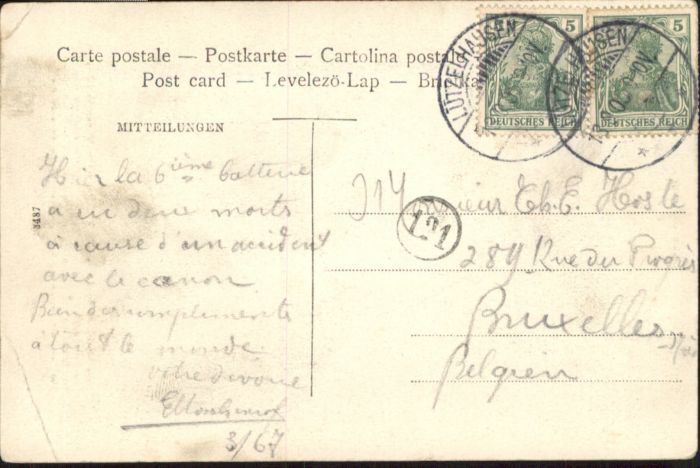 Carte postale – Postkarte – Cartolina postale
Post card – Levelezö-Lap –
MITTEILUNGEN
3487
Hier la 6ième batterie
a eu deux morts
à cause d'un accident
avec le canon
Bien des compliments
à tout le monde
votre dévoué
3/67
5
DEUTSCHES REICH
5
DEUTSCHES REICH
LÜTZELHAUSEN
LÜTZELHAUSEN
121
314
Monsieur Ch. E. Hoste
289 Rue du Progrès
Bruxelles
Belgien